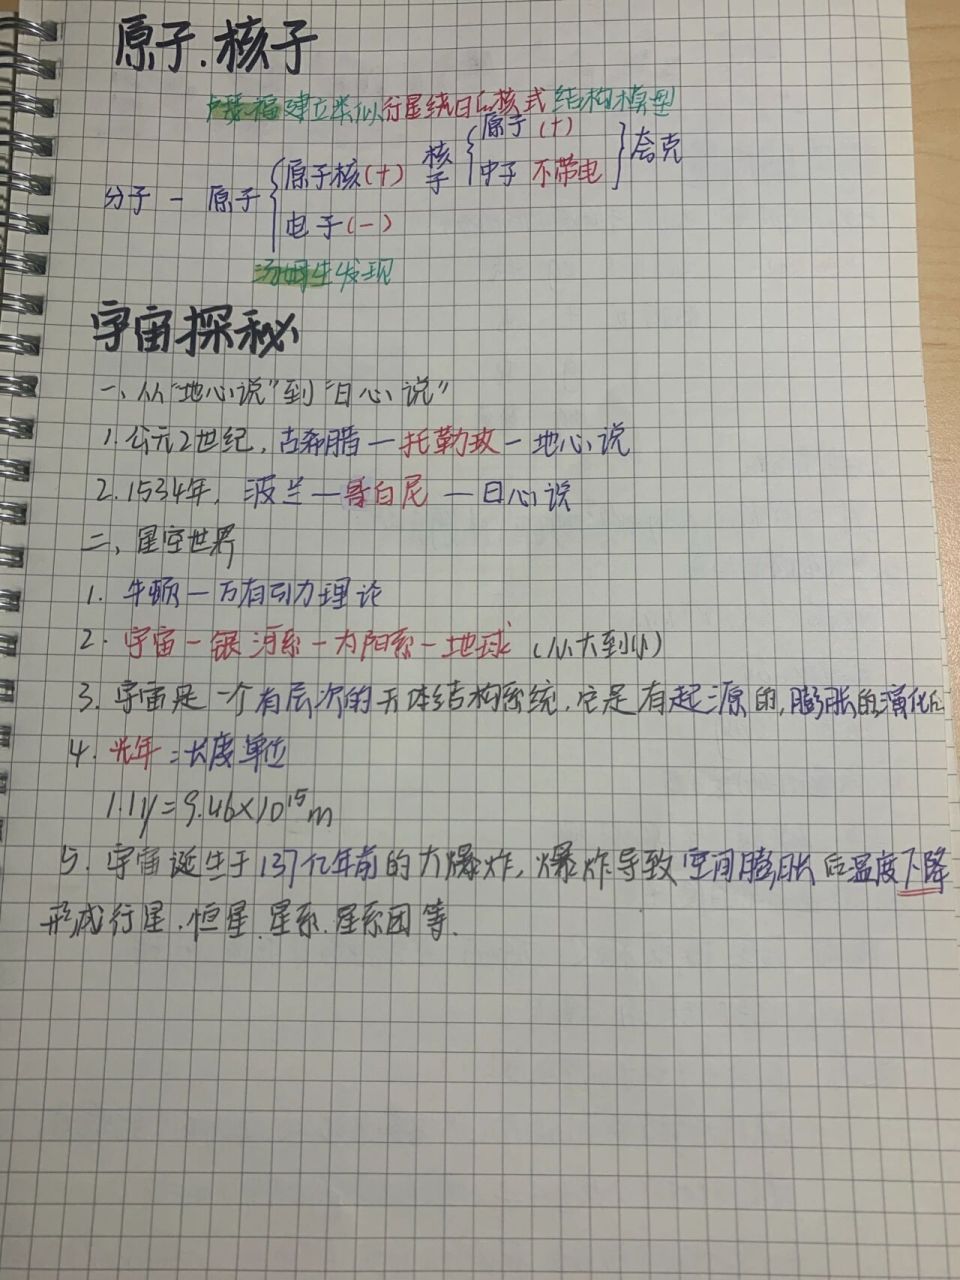 原子.核子
卢瑟福建立类似行星绕日的核式结构模型
分子 - 原子 { 原子核(+) 核子 { 原子(+) 中子 不带电 } 夸克
电子(-)
汤姆生发现
宇宙探秘
一、从"地心说"到"日心说"
1.公元2世纪,古希腊—托勒玫-地心说
2.1534年, 波兰—哥白尼—日心说
二、星空世界
1. 牛顿—万有引力理论
2. 宇宙-银河系-太阳系-地球 (从大到小)
3. 宇宙是一个有层次的天体结构系统,它是有起源的,膨胀的,演化的
4. 光年:长度单位
1.1y=9.46×10¹⁵m
5. 宇宙诞生于137亿年前的大爆炸,爆炸导致空间膨胀后温度下降
形成行星.恒星.星系.星系团等.